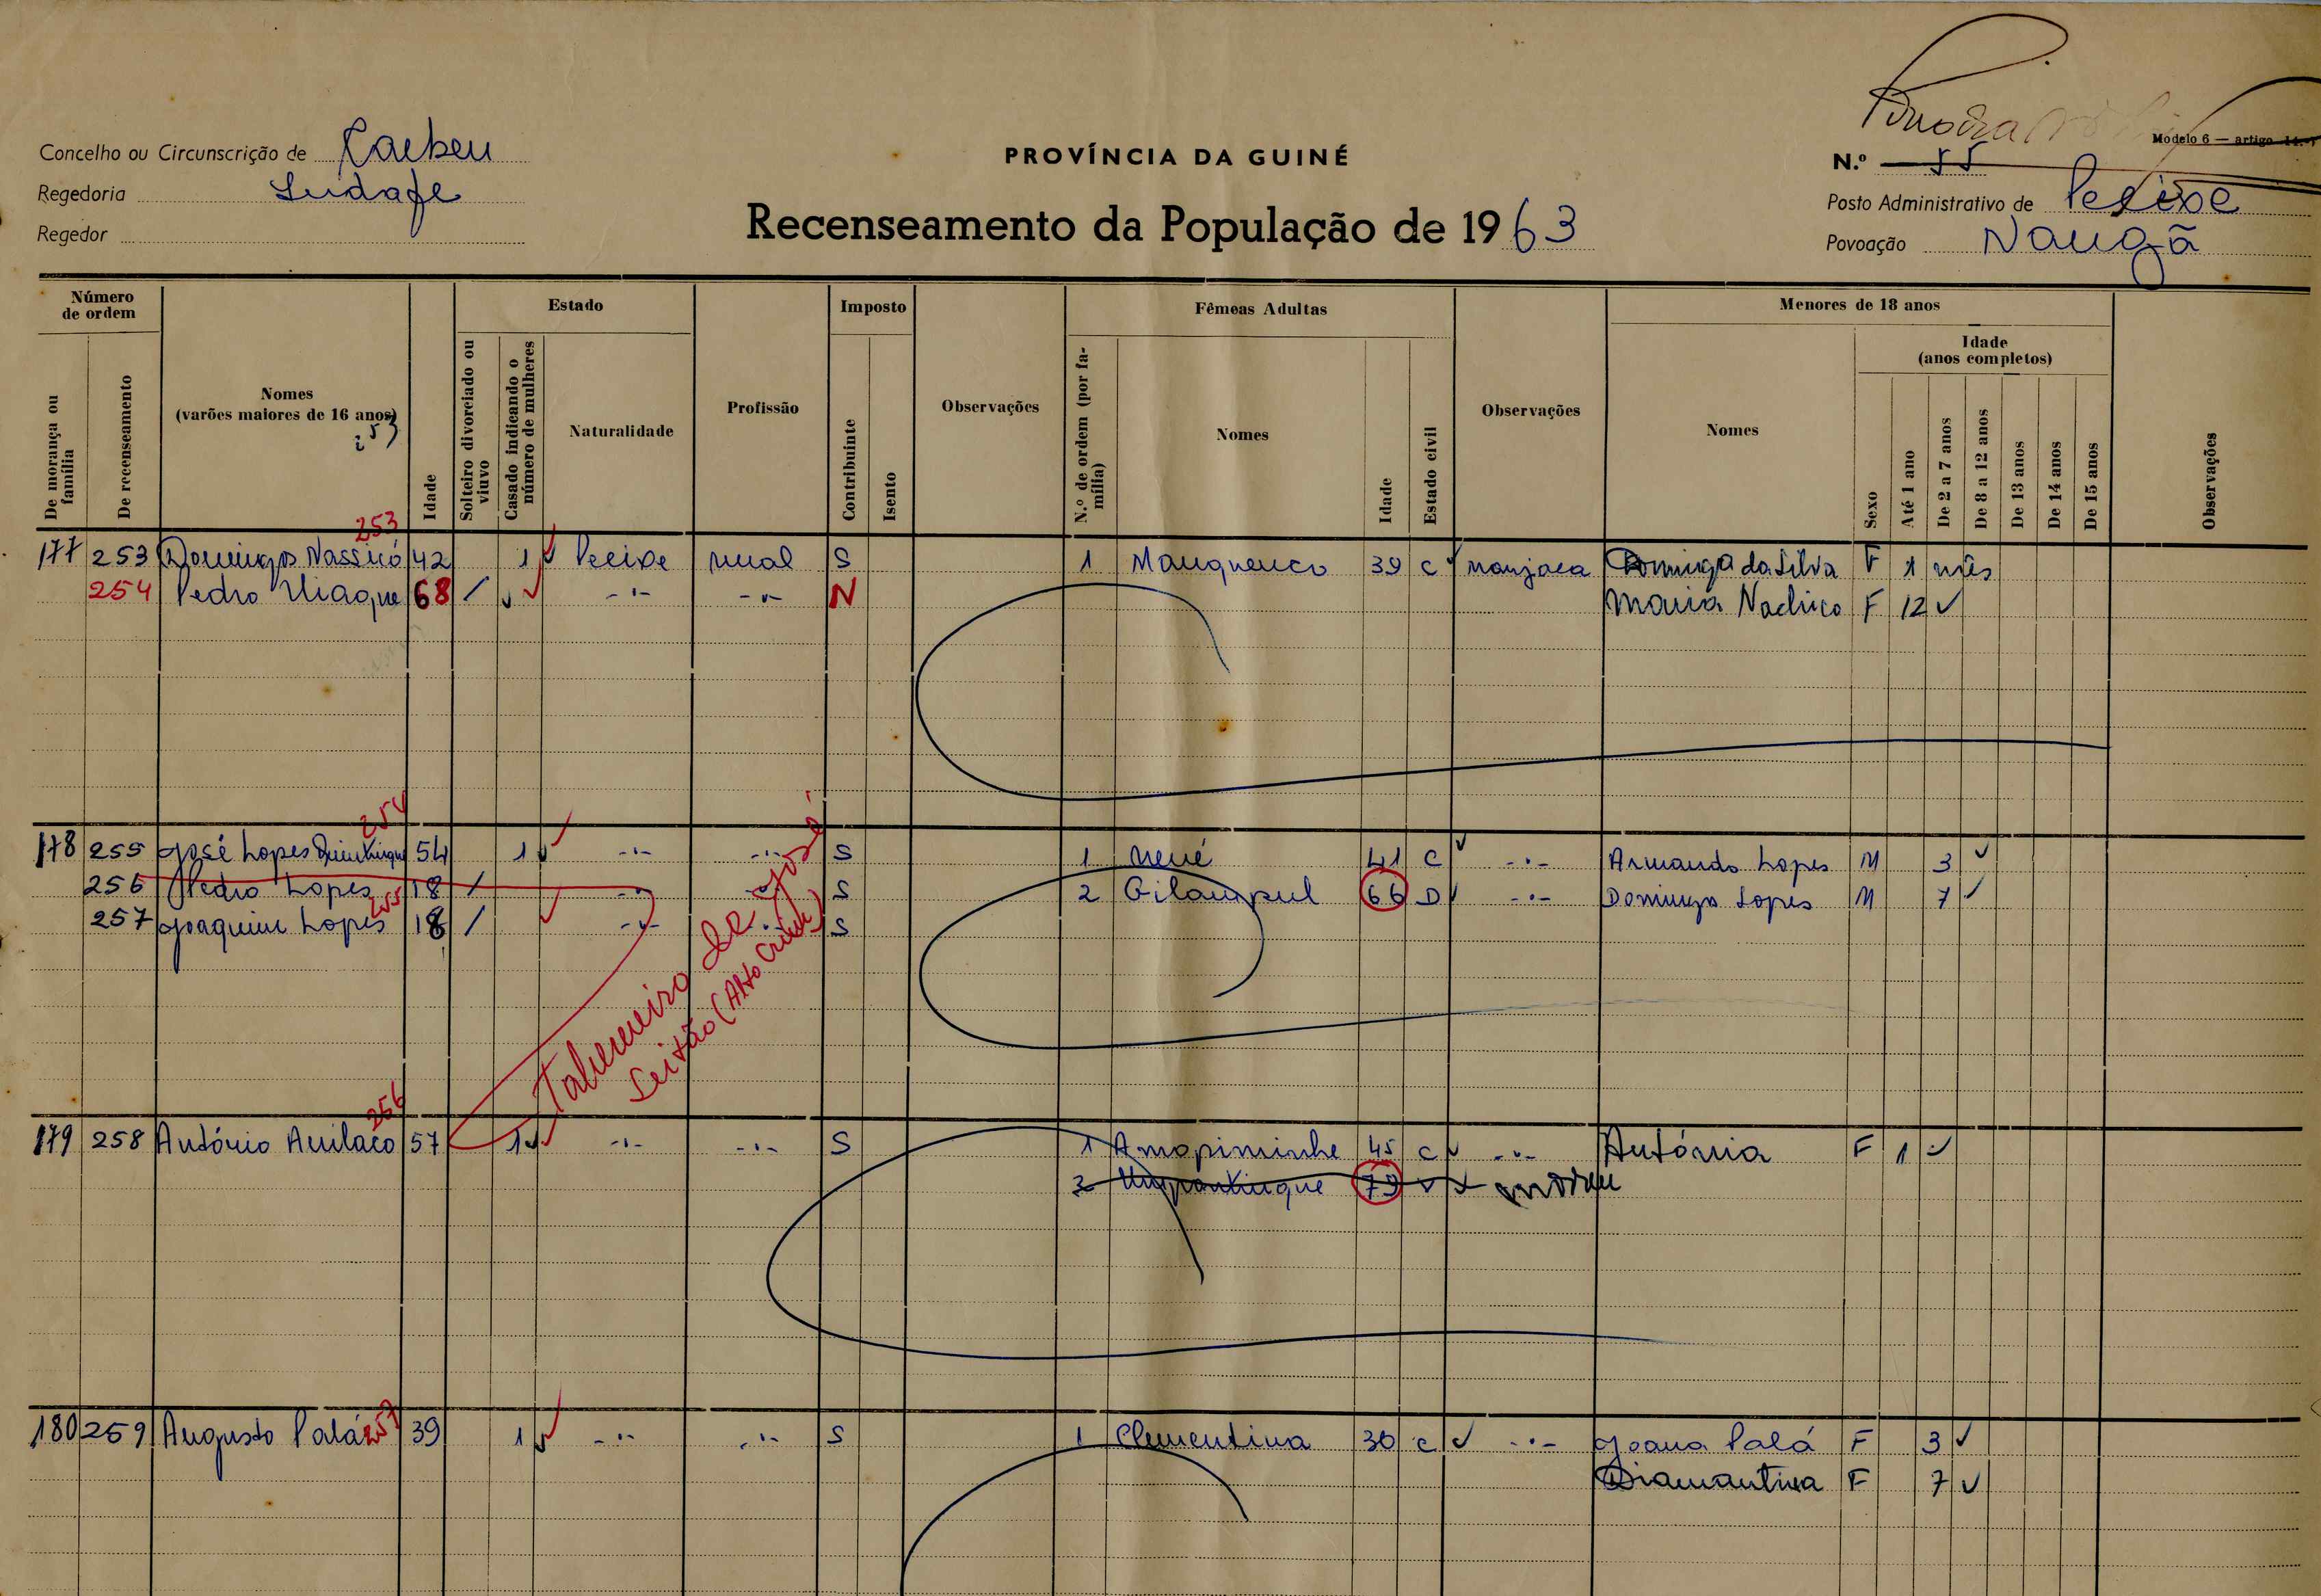 Modelo 6 — artigo 14.º
Concelho ou Circunscrição de Caeheu
PROVÍNCIA DA GUINÉ
N.º 55
Regedoria
Recenseamento da População de 1963
Posto Administrativo de Pecixe
Regedor
Povoação Naugã
Número de ordem
De morança ou família
De recenseamento
Nomes
(varões maiores de 16 anos)
Idade
Estado
Solteiro divorciado ou viuvo
Casado indicando o número de mulheres
Naturalidade
Profissão
Imposto
Contribuinte
Isento
Observações
Fêmeas Adultas
N.º de ordem (por família)
Nomes
Idade
Estado civil
Observações
Menores de 18 anos
Nomes
Sexo
Idade
(anos completos)
Até 1 ano
De 2 a 7 anos
De 8 a 12 anos
De 13 anos
De 14 anos
De 15 anos
Observações
253
177 253 Domingos Nassicó 42 1 Pecixe rual S 1 Mauquenco 39 C manjaca Dominga da Silva F 1 mês
254 Pedro 68 / -"- -"- N Maria Nachico F 12
254
178 255 José Lopes 54 1 -"- -"- S 1 Nené 41 C -"- Armando Lopes M 3
256 Pedro Lopes 18 / -"- S 2 Gilampul 66 D -"- Domingos Lopes M 7
255
257 Joaquim Lopes 18 / -"- -"- S
Taberneiro de José
Leitão (Alto Crim)
256
179 258 António Anilaco 57 1 -"- -"- S 1 Amopiminhe 45 C -"- Antónia F 1
2 79 V
180 259 Augusto Palá 257 39 1 -"- -"- S 1 Clementina 36 C -"- Joana Palá F 3
Diamantina F 7